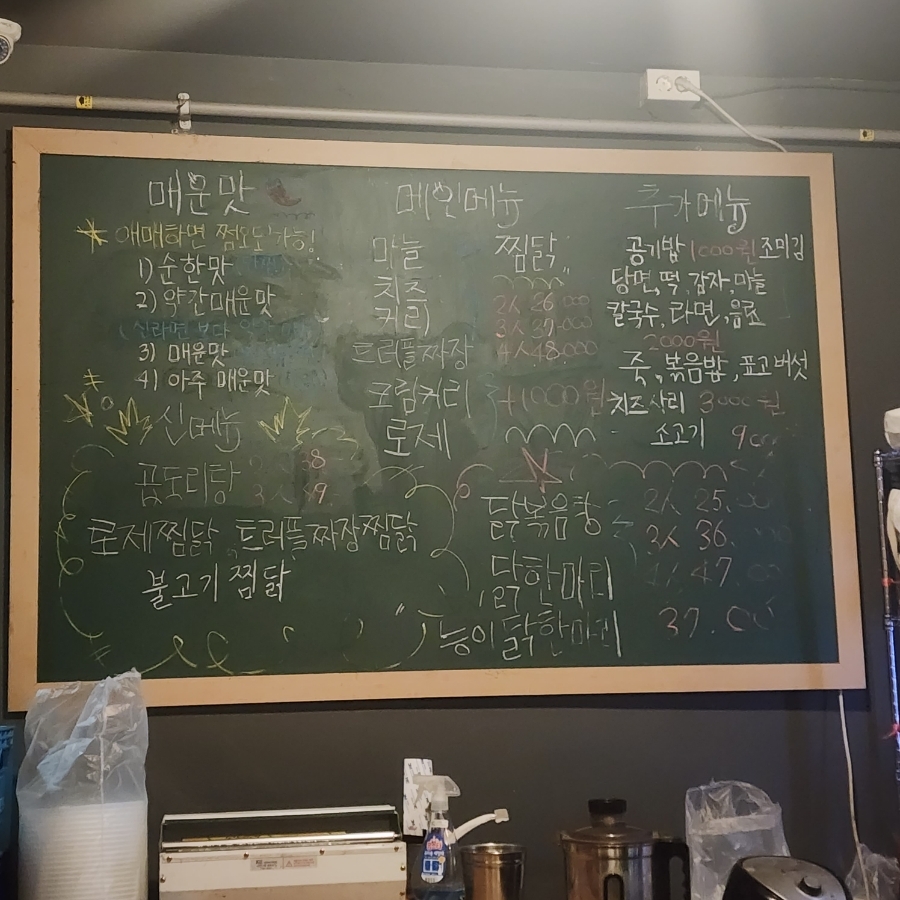 매운맛
애매하면 쩜오도 가능!
1) 순한맛
2) 약간매운맛
(신라면 보다
3) 매운맛
4) 아주 매운맛
신메뉴
곰도리탕
로제찜닭 트러플짜장찜닭
불고기 찜닭
메인메뉴
마늘
치즈
커리
트러플짜장
크림커리
로제
찜닭
2人 26.000
3人 37.000
4人 48.000
+1000원
닭볶음탕
2人 25.
3人 36.
47.
닭한마리
능이닭한마리
37.00
추가메뉴
공기밥 1000원 조미김
당면,떡,감자,마늘
칼국수, 라면,음료
2000원
죽,볶음밥,표고버섯
치즈사리 3000원
소고기